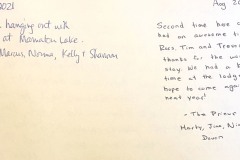 2021
hanging out with
at Mamatu Lake.
Marcus, Norma, Kelly & Shannon
Aug 20
Second time here
had an awesome ti
Russ, Tim and
thanks for the wo
stay. We had a
time at the lodge
hope to come again
next year!
- The
Marty, Jine, Ni
Dawn